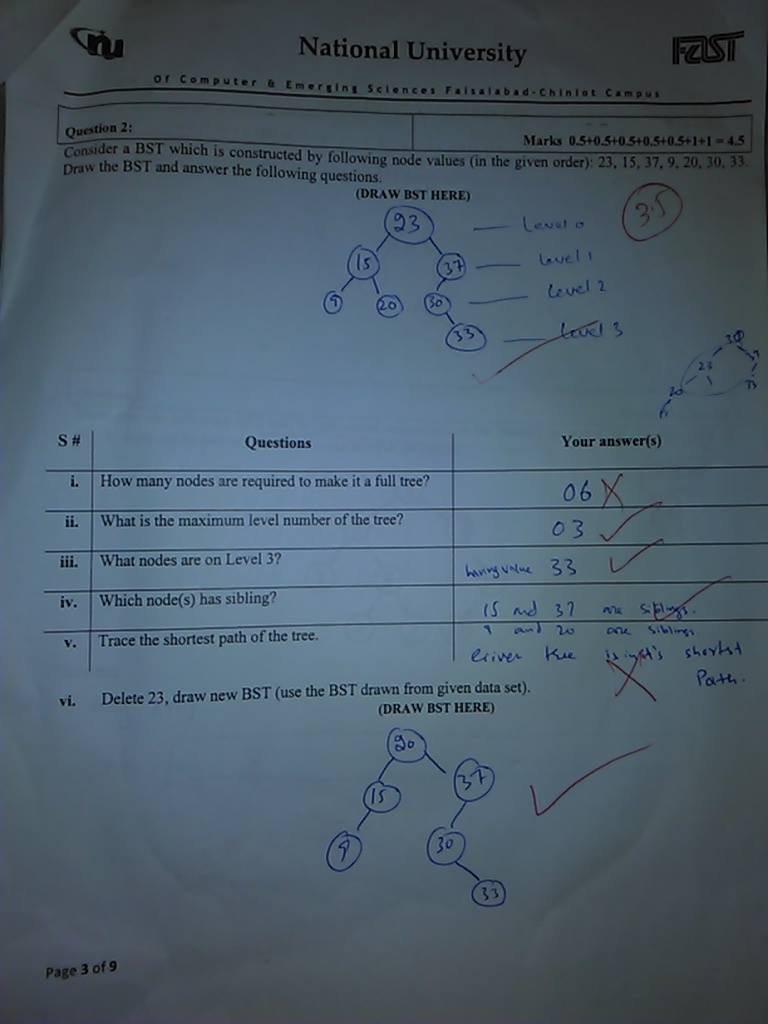 nu
National University
FAST
Of Computer & Emerging Sciences Faisalabad-Chiniot Campus
Question 2:
Marks 0.5+0.5+0.5+0.5+0.5+1+1 = 4.5
Consider a BST which is constructed by following node values (in the given order): 23, 15, 37, 9, 20, 30, 33.
Draw the BST and answer the following questions.
(DRAW BST HERE)
3.5
23 Level 0
15 37 Level 1
9 20 30 Level 2
33 Level 3
30
23
20
S # Questions Your answer(s)
i. How many nodes are required to make it a full tree? 06
ii. What is the maximum level number of the tree? 03
iii. What nodes are on Level 3? having value 33
iv. Which node(s) has sibling? 15 and 37 are siblings.
9 and 20 are siblings
v. Trace the shortest path of the tree.
Given tree is in it's shortest
Path.
vi. Delete 23, draw new BST (use the BST drawn from given data set).
(DRAW BST HERE)
20
15 37
9 30
33
Page 3 of 9